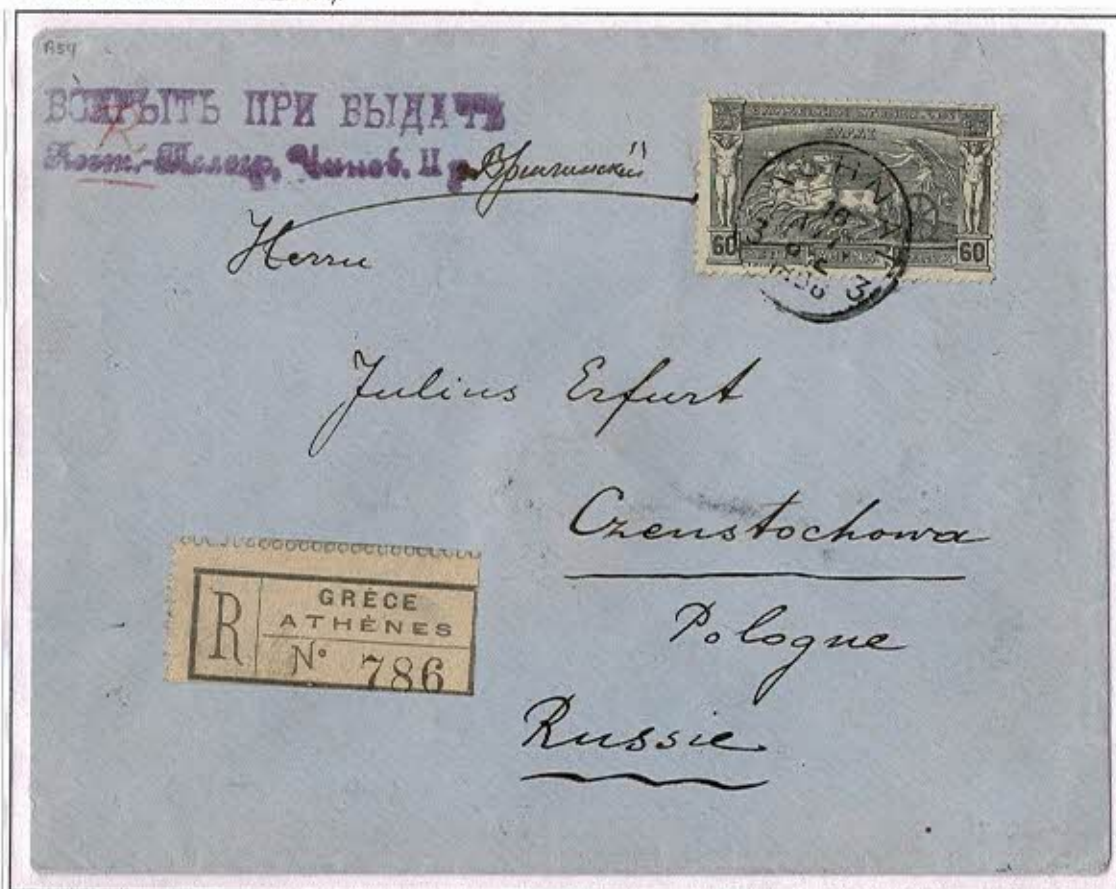 ВСКРЫТЬ ПРИ ВЫДАЧѢ
Почт.-Телегр. Чинов. II р.
R
60 60
ΑΘΗΝΑΙ
3 3
Herrn
Julius Erfurt
Czenstochowa
Pologne
Russie
R
GRÈCE
ATHÈNES
N° 786